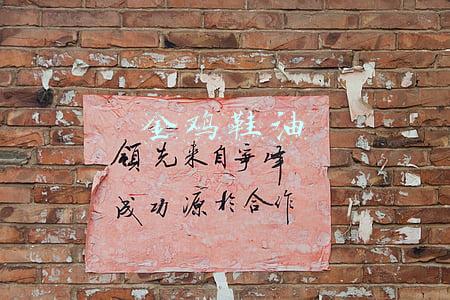 金鸡鞋油
领先来自争峰
成功源於合作